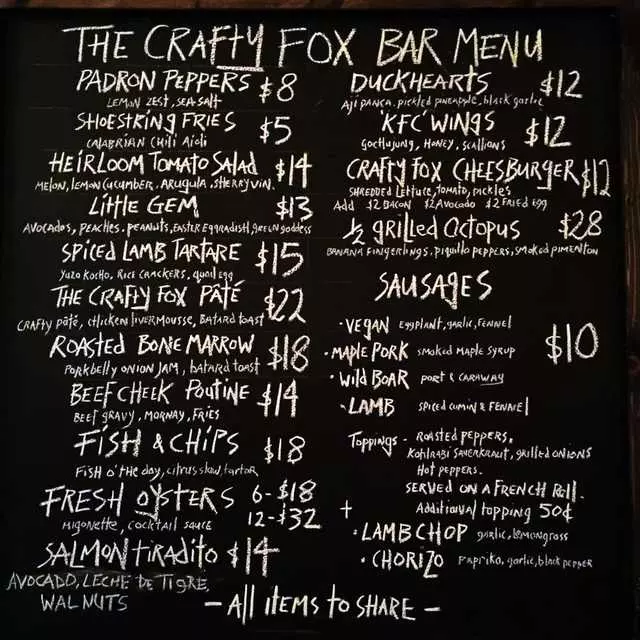 THE CRAFTY FOX BAR MENU
PADRON PEPPERS $8
LEMON ZEST, SEA SALT
SHOESTRING FRIES $5
CALABRIAN CHILI AIOLI
HEIRLOOM TOMATO SALAD $14
MELON, LEMON CUCUMBER, ARUGULA, SHERRY VIN.
LITTLE GEM $13
AVOCADOS, PEACHES, PEANUTS, EASTER EGG RADISH, GREEN GODDESS
SPICED LAMB TARTARE $15
YUZO KOCHO, RICE CRACKERS, QUAIL EGG
THE CRAFTY FOX PÂTÉ $22
CRAFTY PÂTÉ, CHICKEN LIVER MOUSSE, BATARD TOAST
ROASTED BONE MARROW $18
PORKBELLY ONION JAM, BATARD TOAST
BEEF CHEEK POUTINE $14
BEEF GRAVY, MORNAY, FRIES
FISH & CHIPS $18
FISH O' THE DAY, CITRUS SLAW, TARTAR
FRESH OYSTERS 6-$18
12-$32
MIGONETTE, COCKTAIL SAUCE
SALMON TIRADITO $14
AVOCADO, LECHE DE TIGRE,
WALNUTS
DUCKHEARTS $12
AJI PANCA, PICKLED PINEAPPLE, BLACK GARLIC
'KFC' WINGS $12
GOCHUJUNG, HONEY, SCALLIONS
CRAFTY FOX CHEESBURGER $12
SHREDDED LETTUCE, TOMATO, PICKLES
Add $2 BACON $2 AVOCADO $2 FRIED EGG
½ GRILLED OCTOPUS $28
BANANA FINGERLINGS, PIQUILLO PEPPERS, SMOKED PIMENTON
SAUSAGES
$10
• VEGAN EGGPLANT, GARLIC, FENNEL
• MAPLE PORK SMOKED MAPLE SYRUP
• WILD BOAR PORT & CARAWAY
• LAMB SPICED CUMIN & FENNEL
TOPPINGS - ROASTED PEPPERS,
KOHLRABI SAUERKRAUT, GRILLED ONIONS
HOT PEPPERS.
SERVED ON A FRENCH ROLL.
+ Additional topping 50¢
• LAMB CHOP GARLIC, LEMONGRASS
• CHORIZO PAPRIKA, GARLIC, BLACK PEPPER
- All ITEMS TO SHARE -